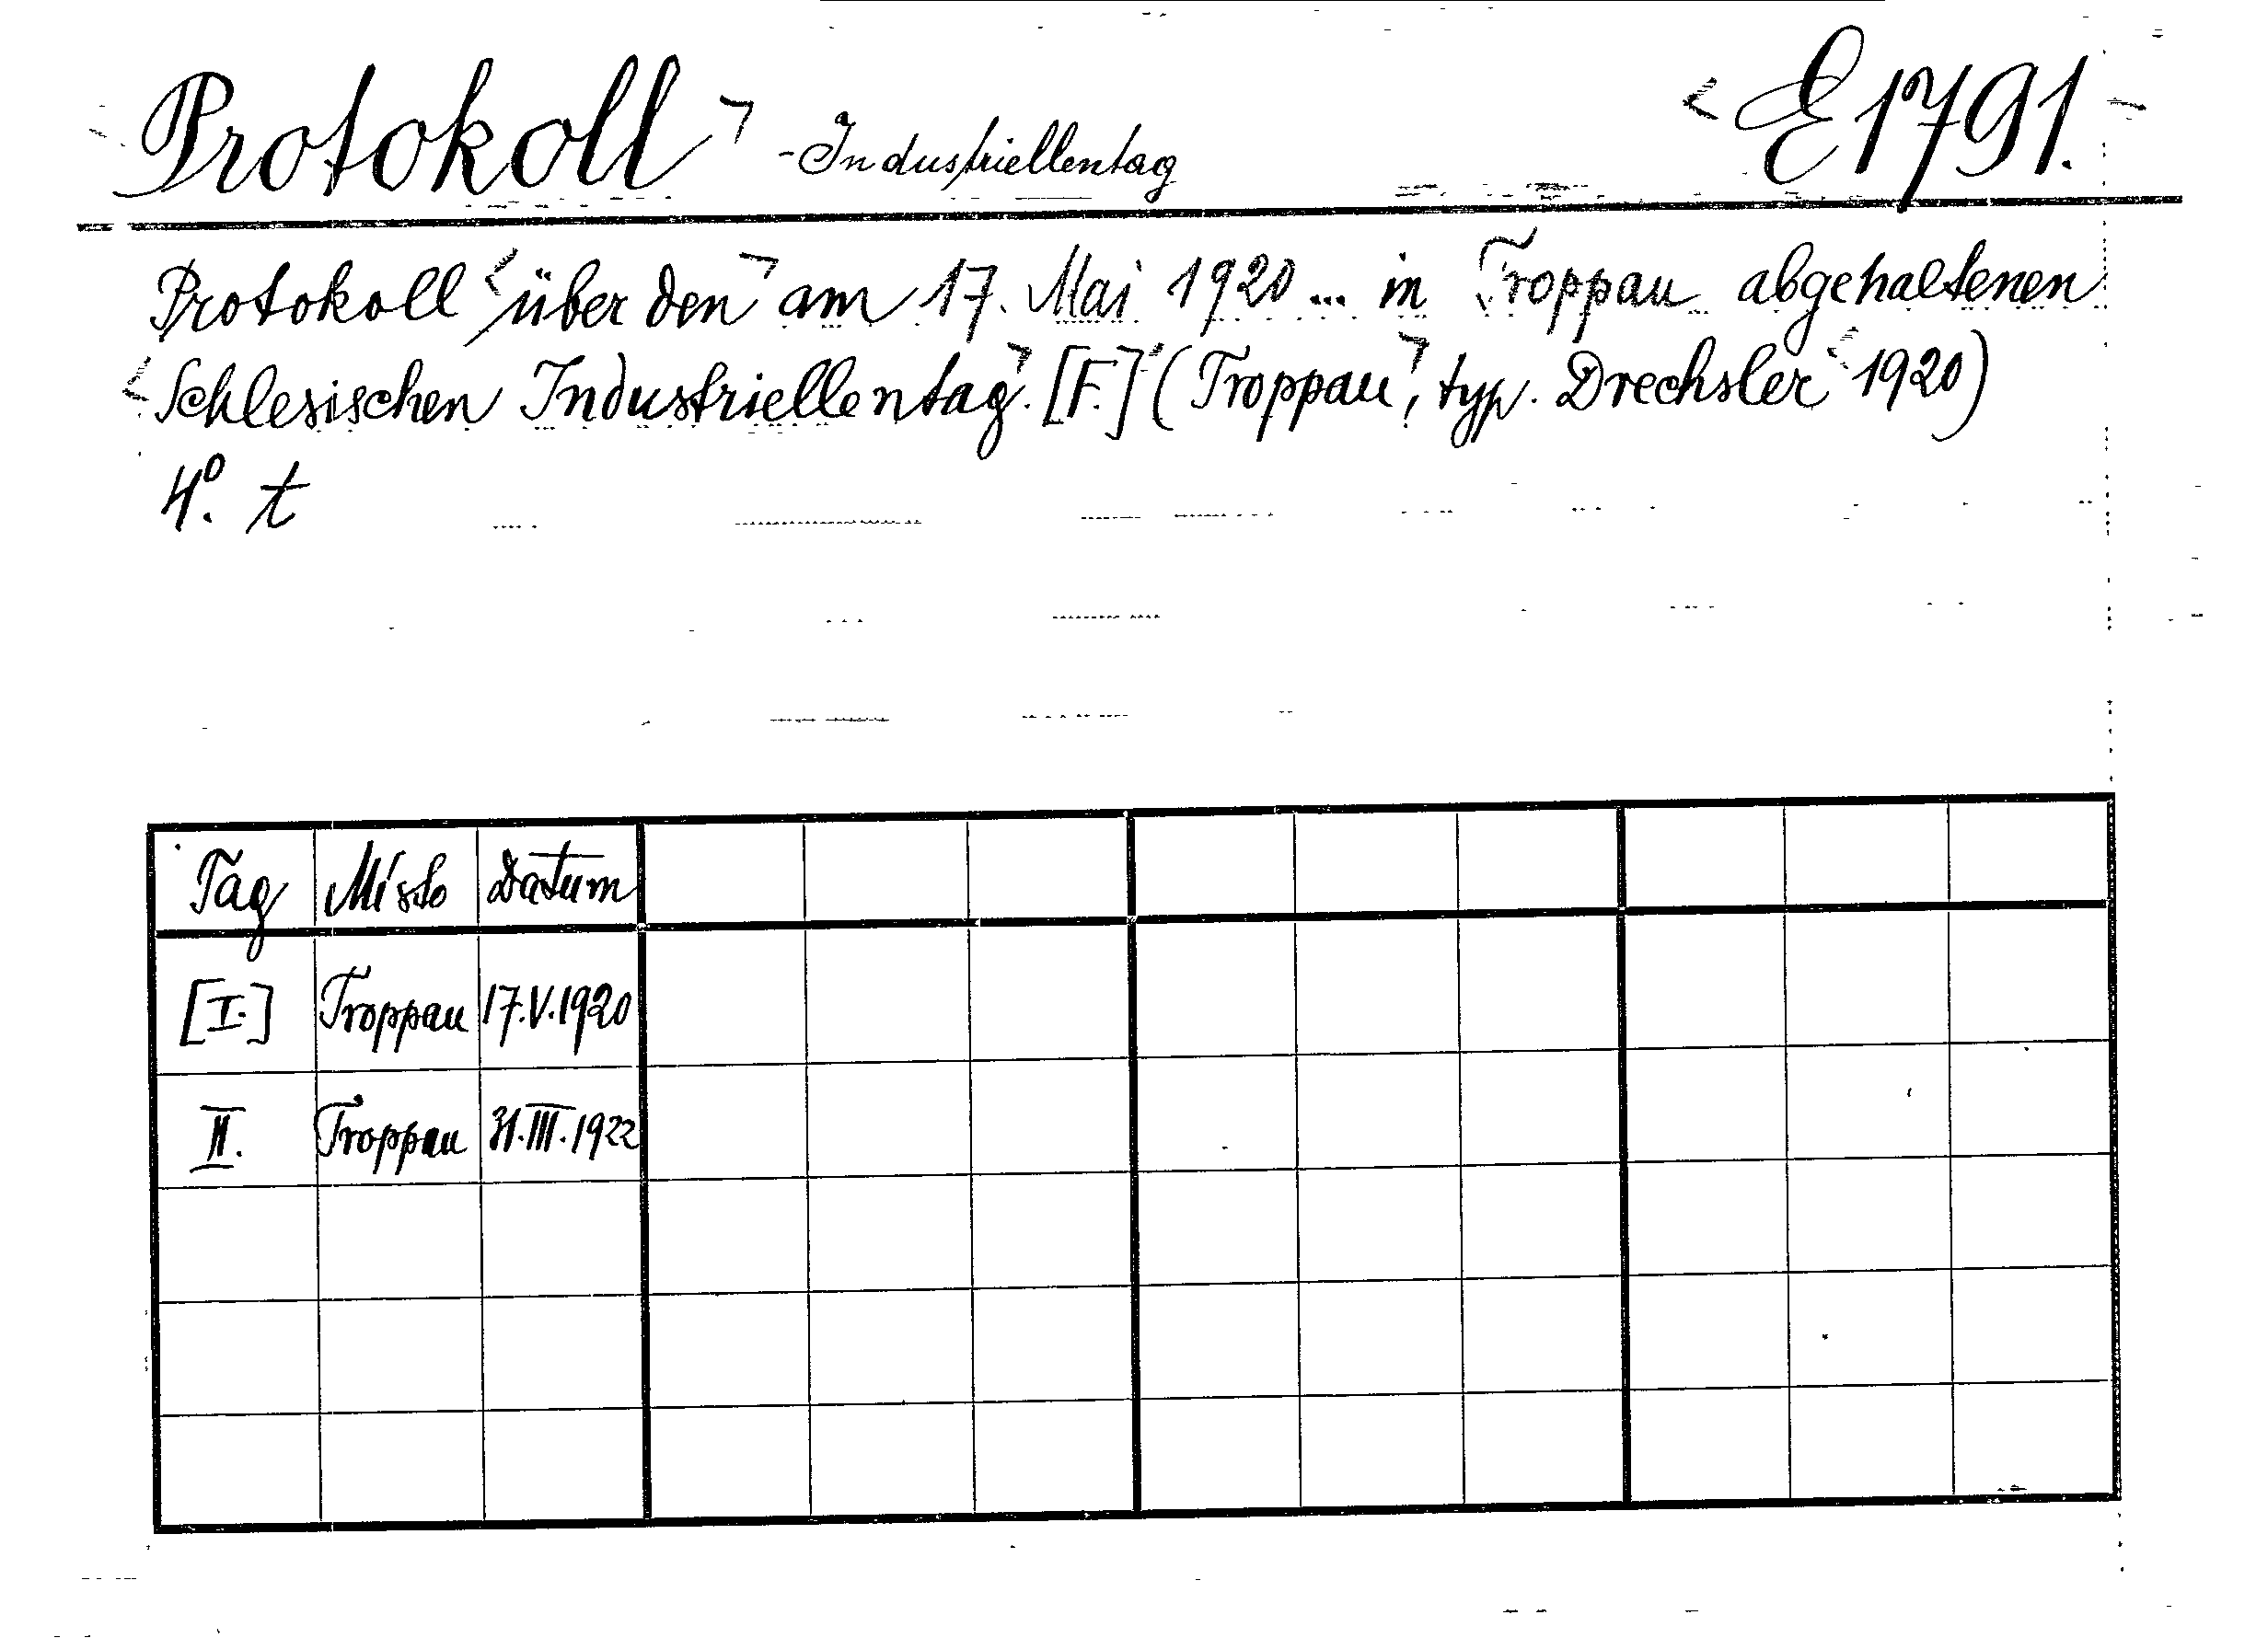 Protokoll - Industriellentag E 1791.
Protokoll über den am 17. Mai 1920 ... in Troppau abgehaltenen
Schlesischen Industriellentag. [F.] (Troppau, typ. Drechsler 1920)
4°. t
Tag Místo Datum
[I.] Troppau 17.V.1920
II. Troppau 31.III.1922